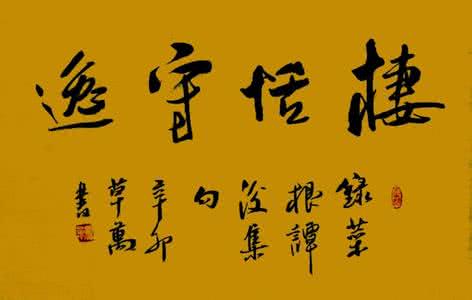 棲恬守逸
錄菜
根譚
後集
句
辛卯
草萬
書